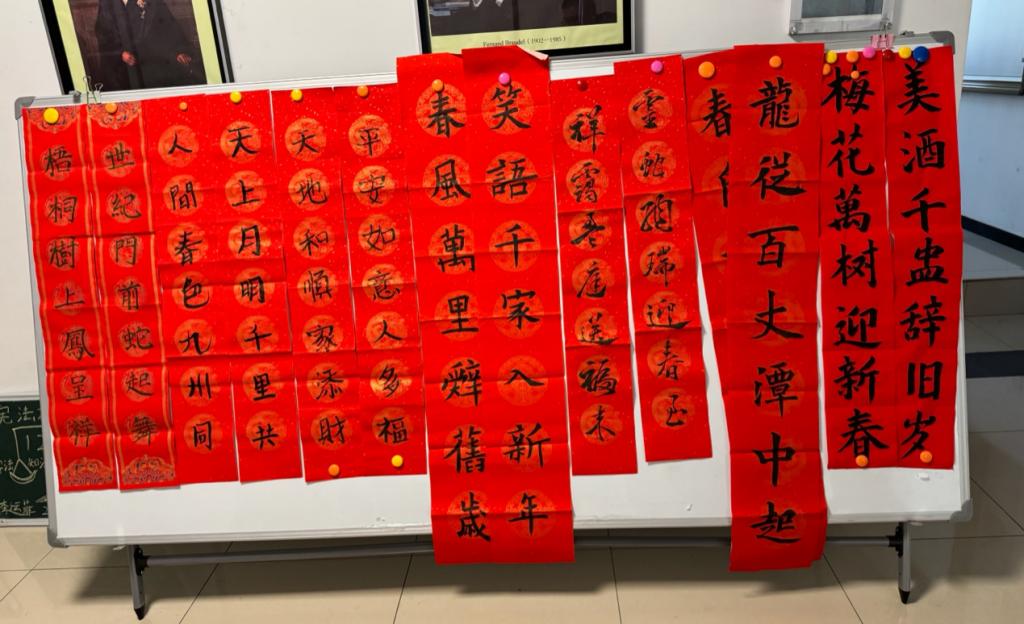 Fernand Braudel (1902-1985)
美酒千盅辞旧岁
梅花萬树迎新春
龍從百丈潭中起
春
靈蛇翔瑞迎春至
祥靄盈庭送福来
笑語千家入新年
春風萬里辭舊歲
平安如意人多福
天地和順家添財
天上月明千里共
人間春色九州同
世紀門前蛇起舞
梧桐樹上鳳呈祥
宪法